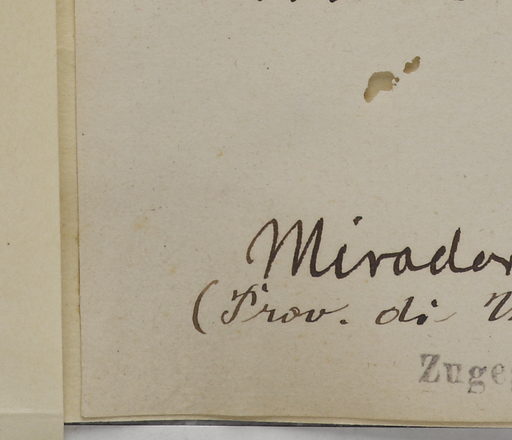 Mirador
(Prov. di
Zuge